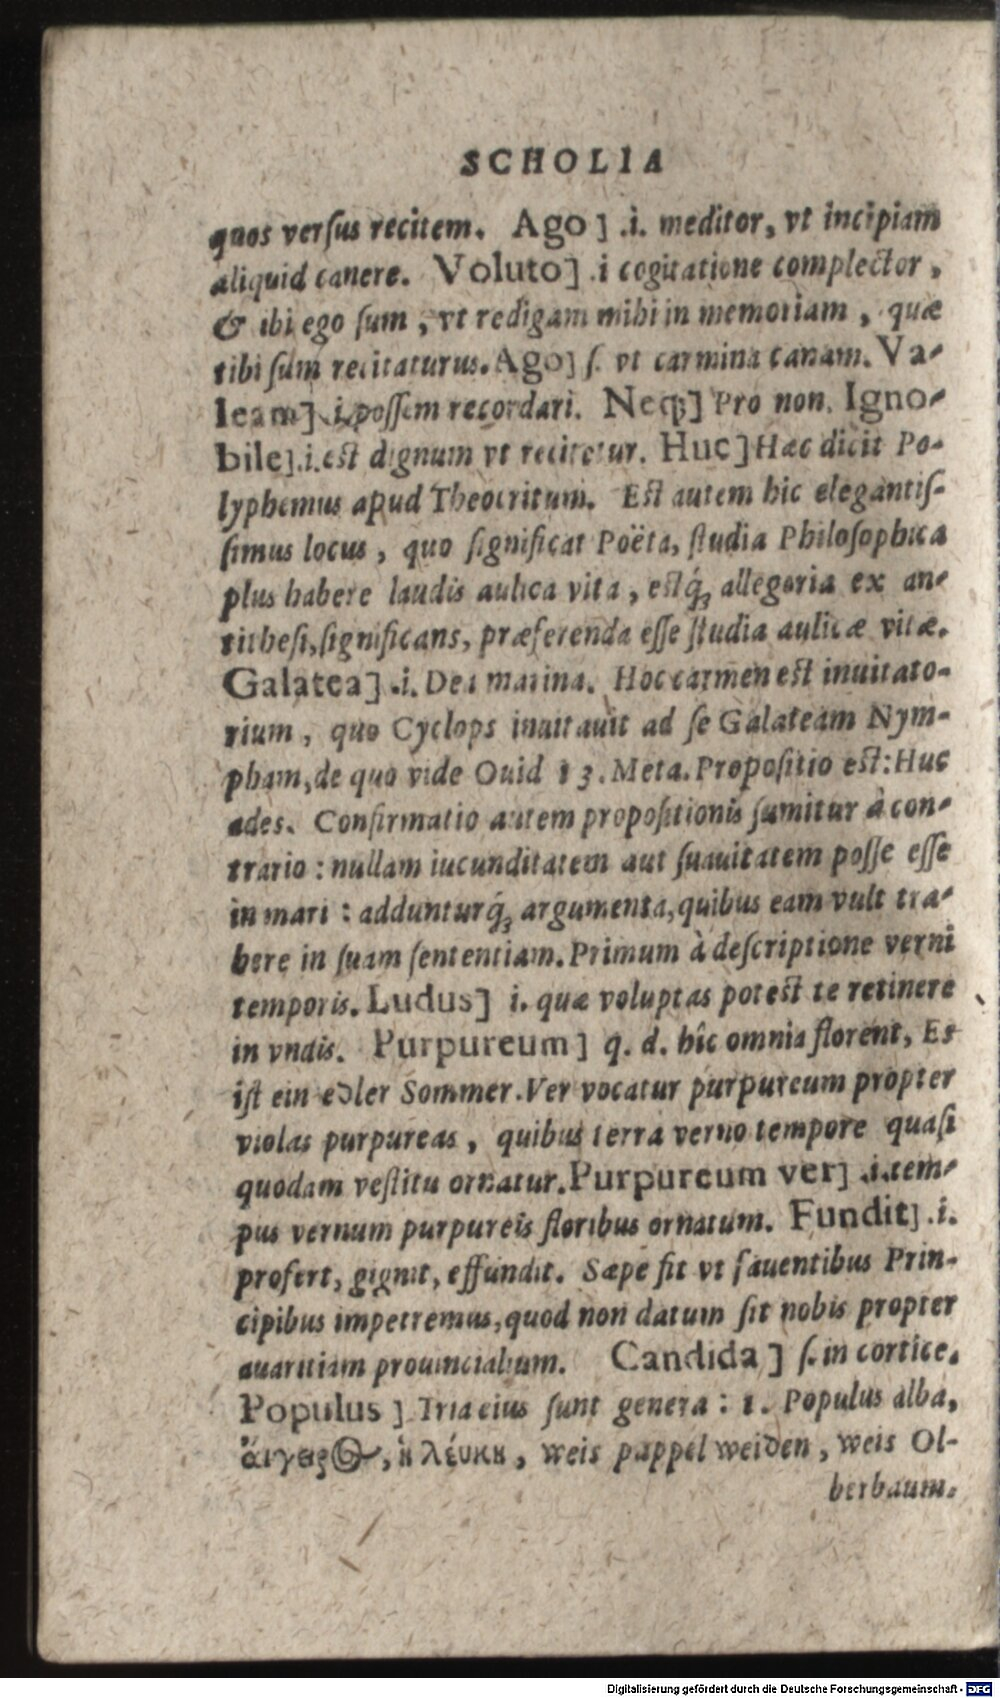 SCHOLIA
quos versus recitem. Ago] .i. meditor, vt incipiam
aliquid canere. Voluto] .i cogitatione complector,
& ibi ego sum, vt redigam mihi in memoriam, quæ
tibi sum recitaturus. Ago] s. vt carmina canam. Va-
leam] .i. possem recordari. Neq;] Pro non. Igno-
bile] .i. est dignum vt recitetur. Huc] Hæc dicit Po-
lyphemus apud Theocritum. Est autem hic elegantis-
simus locus, quo significat Poëta, studia Philosophica
plus habere laudis aulica vita, estq́; allegoria ex an-
tithesi, significans, præferenda esse studia aulicæ vitæ.
Galatea] .i. Dea marina. Hoc carmen est inuitato-
rium, quo Cyclops inuitauit ad se Galateam Nym-
pham, de quo vide Ouid 13. Meta. Propositio est: Huc
ades. Confirmatio autem propositionis sumitur à con-
trario: nullam iucunditatem aut suauitatem posse esse
in mari: addunturq́; argumenta, quibus eam vult tra-
here in suam sententiam. Primum à descriptione verni
temporis. Ludus] i. quæ voluptas potest te retinere
in vndis. Purpureum] q. d. hîc omnia florent, Es
ist ein edler Sommer. Ver vocatur purpureum propter
violas purpureas, quibus terra verno tempore quasi
quodam vestitu ornatur. Purpureum ver] .i. tem-
pus vernum purpureis floribus ornatum. Fundit] .i.
profert, gignit, effundit. Sæpe fit vt fauentibus Prin-
cipibus impetremus, quod non datum sit nobis propter
auaritiam prouincialium. Candida] s. in cortice.
Populus] Tria eius sunt genera: 1. Populus alba,
ἄιγειρος, ἡ λέυκη, weis pappel weiden, weis Ol-
berbaum.
Digitalisierung gefördert durch die Deutsche Forschungsgemeinschaft - DFG